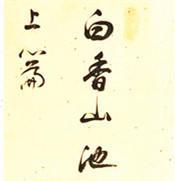 白香山池
上篇